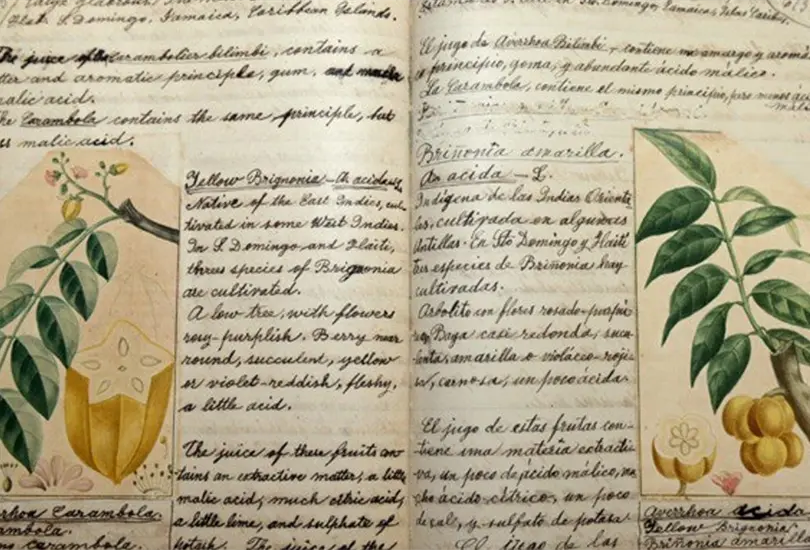 Large glabrous. The
Hab. S. Domingo, Jamaica, Caribbean Islands.
The juice of the Carambolier bilimbi, contains a
tter and aromatic principle, gum, and much
malic acid.
he Carambola contains the same principle, but
ss malic acid.
Yellow Brignonia – An acida
Native of the East Indies, cul-
tivated in some West Indies.
In S. Domingo and Haiti,
three species of Brignonia
are cultivated.
A low tree, with flowers
rosy-purplish. Berry near
round, succulent, yellow
or violet-reddish, fleshy,
a little acid.
The juice of these fruits con
tains an extractive matter, a little
malic acid, much citric acid,
a little lime, and sulphate of
potash. The juice of the
rrhoa Carambola.
ambola.
carambola.
Sto Domingo, Jamaica, Islas Caribes.
El jugo de Averrhoa Bilimbi, contiene un amargo y aromá
principio, goma, y abundante ácido málico.
La Carambola, contiene el mismo principio, pero menos áci
málico
Briñonia amarilla.
An acida – L.
Indígena de las Indias Orienta
les, cultivada en algunas
Antillas. En Sto Domingo y Haití
tres especies de Briñonia hay
cultivadas.
Arbolito con flores rosado-purpú
Baga casi redonda, sucu
lenta, amarilla o violáceo-roji
za, carnosa, un poco ácida.
El jugo de estas frutas con-
tiene una materia extracti-
va, un poco de ácido málico, mu
cho ácido cítrico, un poco
de cal, y sulfato de potasa.
El jugo de las
Averrhoa acida
Yellow Brignonia
Briñonia amarilla